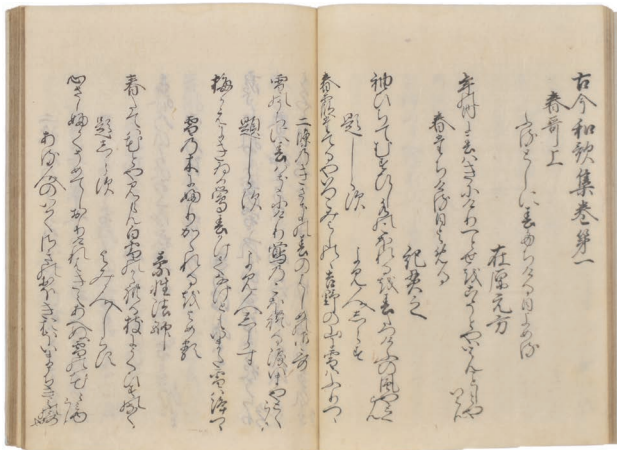 古今和歌集巻第一
春哥上
ふるとしに春たちける日よめる
在原元方
年の内に春はきにけりひとゝせをこそとやいはんことしとや
いはん
春たちける日よめる
紀貫之
袖ひちてむすひし水のこほれるを春立けふの風やとくらん
題しらす　よみ人しらす
春霞たてるやいつこみよしのゝ吉野の山に雪はふりつゝ
二條乃きさきの春のはしめの御哥
雪の内に春はきにけり鶯乃こほれる涙今やとくらん
題しらす　よみ人しらす
梅かえにきゐる鶯春かけてなけともいまた雪はふりつゝ
雪乃木にふりかゝれるをよめる
素性法師
春たては花とやみらん白雪のかゝれる枝にうくひすのなく
題しらす　よみ人しらす
心さしふかくそめてしおりけれはきえあへぬ雪の花とみゆらん
ある人のいはくさきのおほきおほいまうちきみの哥也